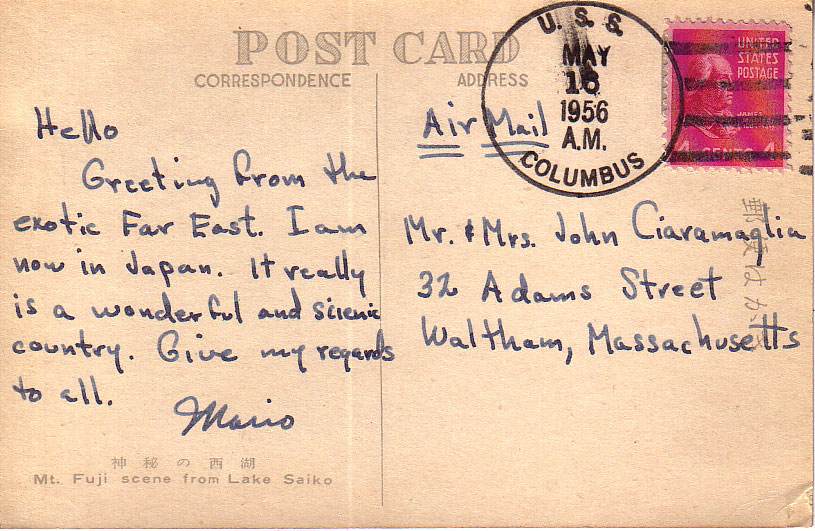 POST CARD
CORRESPONDENCE
ADDRESS
U.S.S.
MAY
1956
A.M.
COLUMBUS
UNITED
STATES
POSTAGE
4 CENTS 4
Hello
Greeting from the
exotic Far East. I am
now in Japan. It really
is a wonderful and scienic
country. Give my regards
to all.
Mario
Air Mail
Mr. & Mrs. John Ciaramaglia
32 Adams Street
Waltham, Massachusetts
郵便はがき
神秘の西湖
Mt. Fuji scene from Lake Saiko